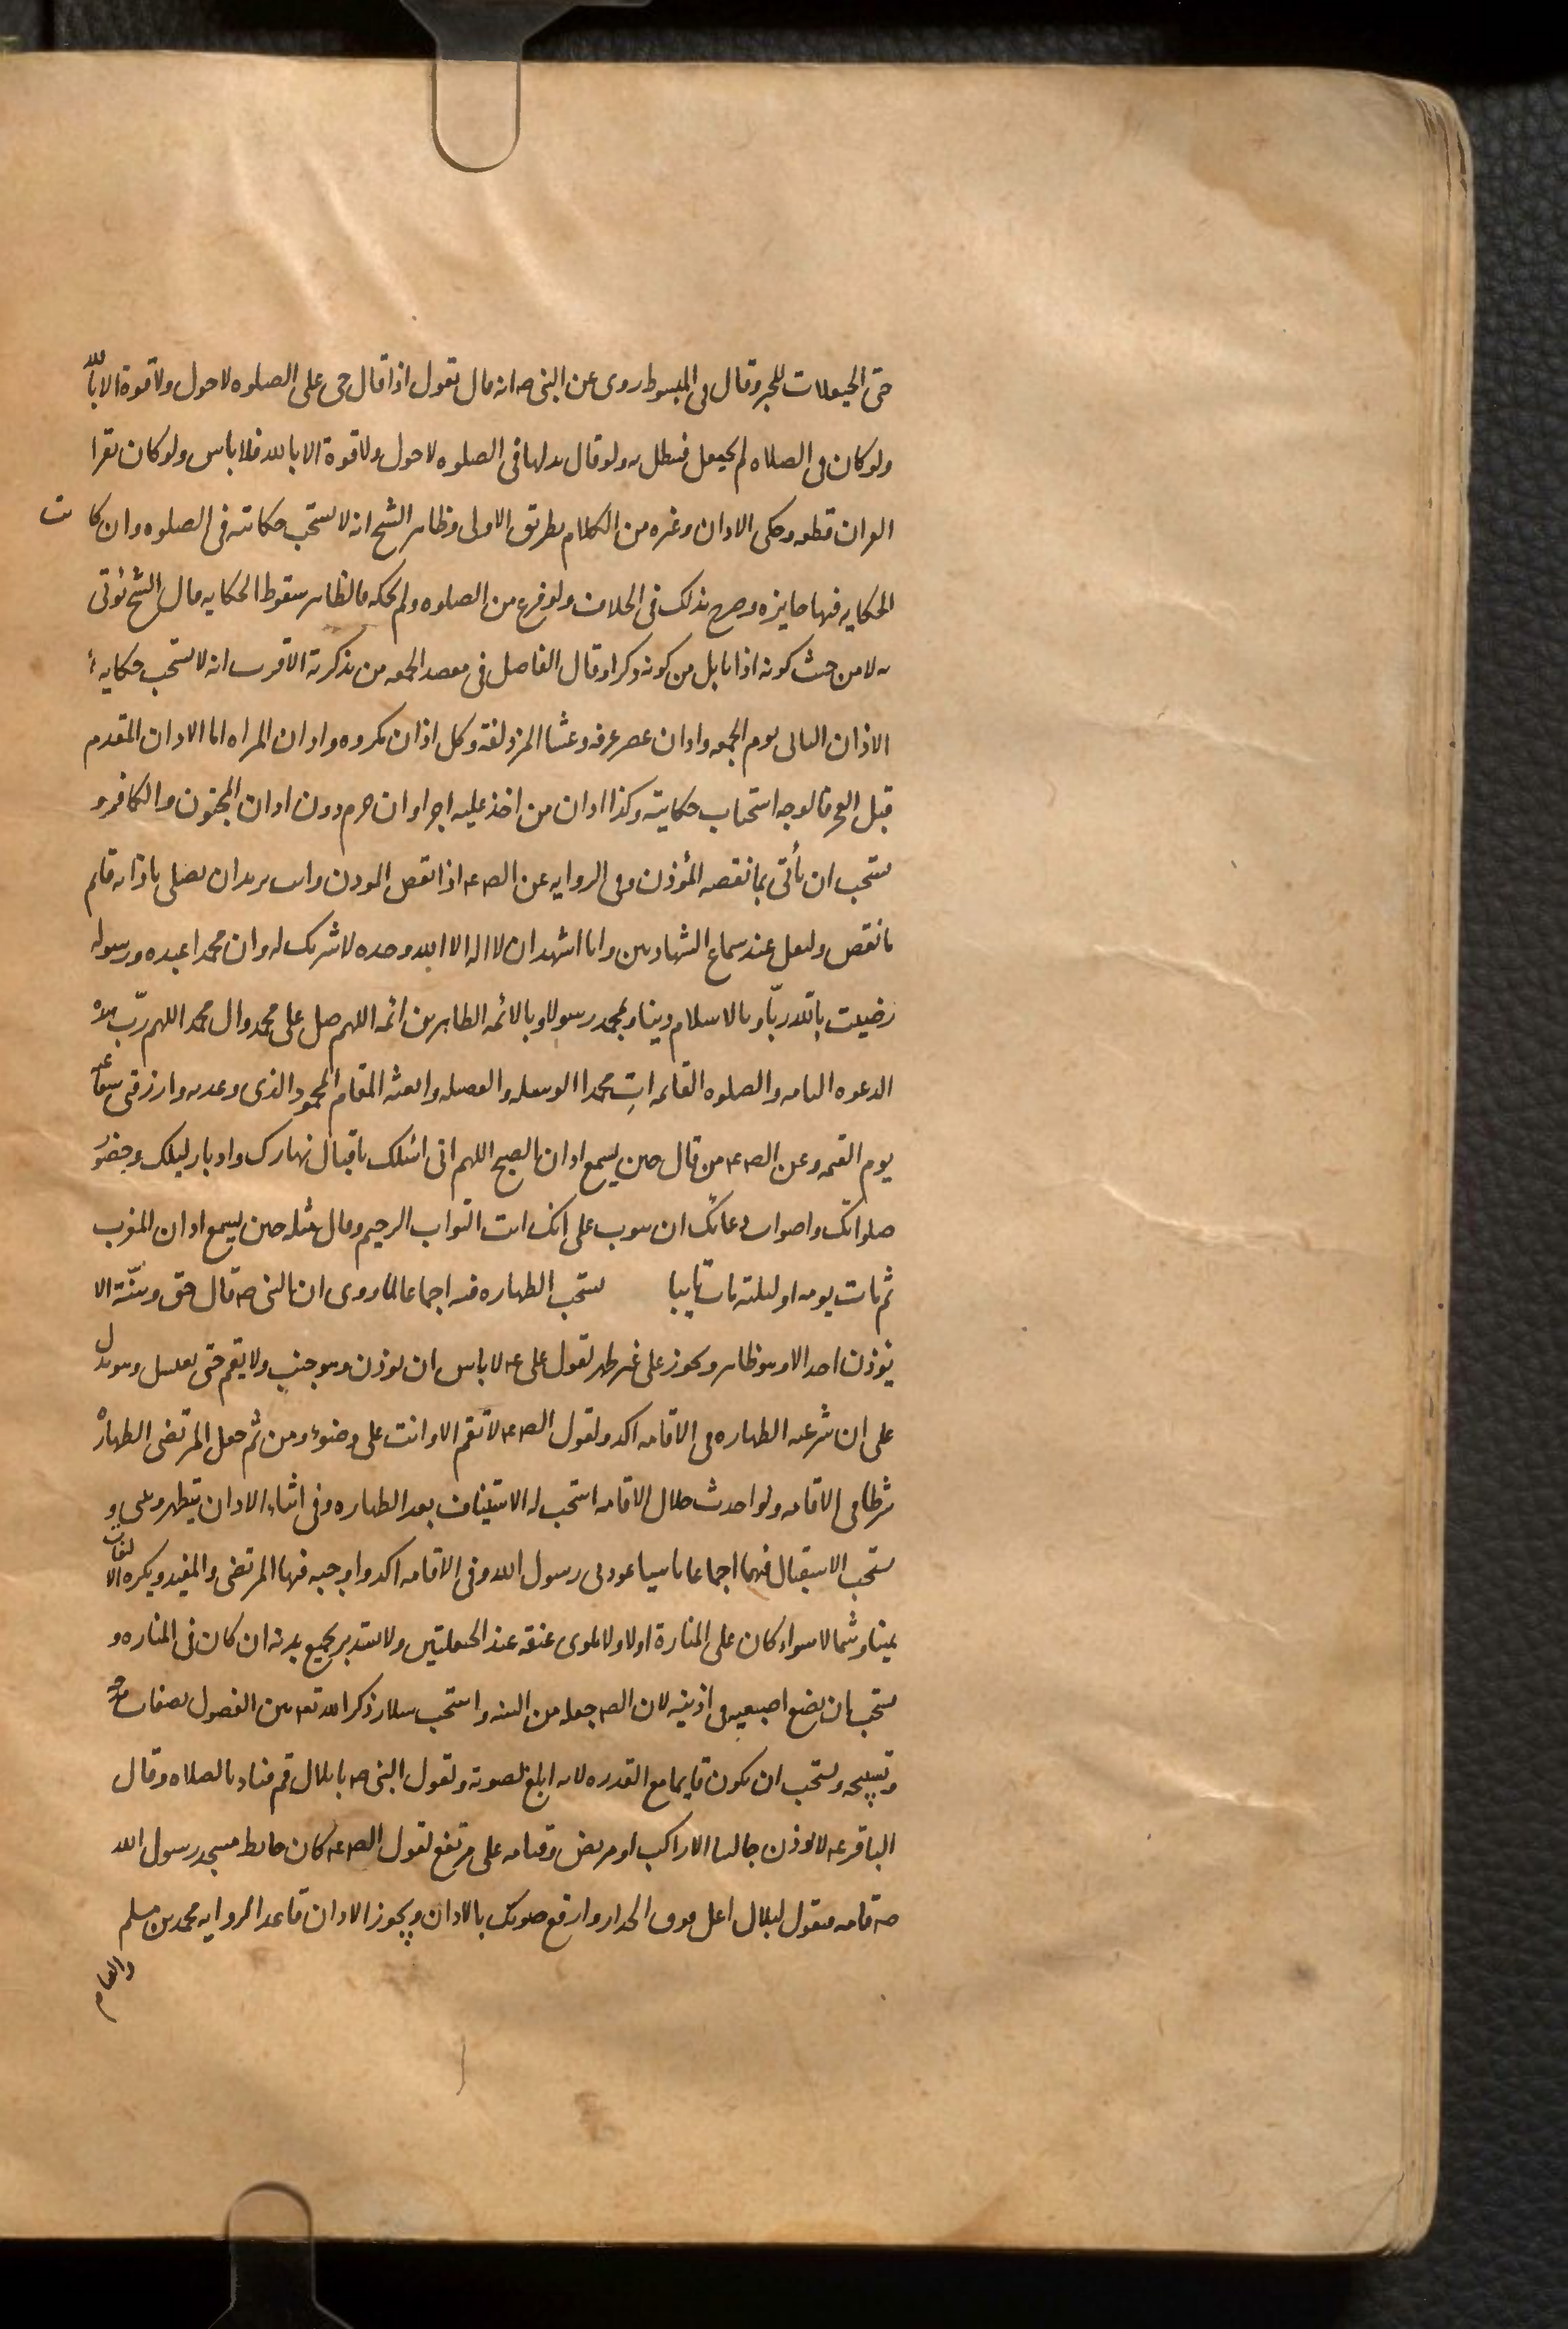 حتى الحيعلات للخبر وقال فى المبسوط روى عن النبى ص انه قال تقول اذا قال حى على الصلوه لا حول ولا قوة الا بالله
ولو كان فى الصلاه لم يحيعل فيبطل به ولو قال بدلها فى الصلوه لا حول ولا قوة الا بالله فلا باس ولو كان يقرا
القران قطعه وحكى الاذان وغيره من الكلام بطريق الاولى وظاهر الشيخ انه لا يستحب حكايته فى الصلوه وان كانت
الحكايه فيها جايزه وصرح بذلك فى الخلاف ولو فرغ من الصلوه ولم يحكه فالظاهر سقوط الحكايه قال الشيخ يؤتى
به لا من حيث كونه اذانا بل من كونه ذكرا وقال الفاضل فى مقصد الجمعه من تذكرته الاقرب انه لا يستحب حكايه
الاذان الثانى يوم الجمعه واذان عصر عرفه وعشا المزدلفة وكل اذان مكروه واذان المراه اما الاذان المقدم
قبل الفجر فالوجه استحباب حكايته وكذا اذان من اخذ عليه اجرا وان حرم دون اذان المجنون والكافر و
يستحب ان يأتى بما نقصه المؤذن وفى الروايه عن الص ع اذا نقص الموذن وانت تريد ان تصلى باذانه فاتم
ما نقص وليقل عند سماع الشهادتين وانا اشهد ان لا اله الا الله وحده لا شريك له وان محمدا عبده ورسوله
رضيت بالله ربّا وبالاسلام دينا وبمحمد رسولا وبالائمه الطاهرين ائمه اللهم صل على محمد وال محمد اللهم ربّ هذه
الدعوه التامه والصلوه القائمه اتِ محمدا الوسيله والفضيله وابعثه المقام المحمود الذى وعدته وارزقنى شفاعته
يوم القيمه وعن الص ع من قال حين يسمع اذان الصبح اللهم انى اسئلك باقبال نهارك وادبار ليلك وحضور
صلواتك واصوات دعاتك ان تتوب على انك انت التواب الرحيم وقال مثله حين يسمع اذان المغرب
ثم مات يومه او ليلته مات تايبا يستحب الطهاره فيه اجماعا لما روى ان النبى ص قال حق وسنّة الا
يؤذن احد الا وهو طاهر ويجوز على غير طهر لقول على ع لا باس ان يوذن وهو جنب ولا يقيم حتى يغتسل وهو يدل
على ان شرعيه الطهاره فى الاقامه اكد ولقول الص ع لا تقم الا وانت على وضوء ومن ثم جعل المرتضى الطهاره
شرطا فى الاقامه ولو احدث خلال الاقامه استحب له الاستيناف بعد الطهاره وفى اثناء الاذان يتطهر ويبنى و
يستحب الاستقبال فيهما اجماعا تاسيا بموذنى رسول الله وفى الاقامه اكد واوجبه فيها المرتضى والمفيد ويكره الالتفات
يمينا وشمالا سواء كان على المنارة او لا ولا يلوى عنقه عند الحيعلتين ولا يستدير بجميع بدنه ان كان فى المناره و
يستحب ان يضع اصبعيه فى اذنيه لان الص جعله من السنه واستحب سلار ذكر الله تع بين الفصول بصفات مدحه
وتسبيحه ويستحب ان يكون قايما مع القدره لانه ابلغ لصوته ولقول النبى ص يا بلال قم فناد بالصلاه وقال
الباقر ع لا يوذن جالسا الا راكب او مريض وقيامه على مرتفع لقول الص ع كان حايط مسجد رسول الله
ص قامه فيقول لبلال اعل فوق الجدار وارفع صوتك بالاذان ويجوز الاذان قاعدا لروايه محمد بن مسلم
والقيام